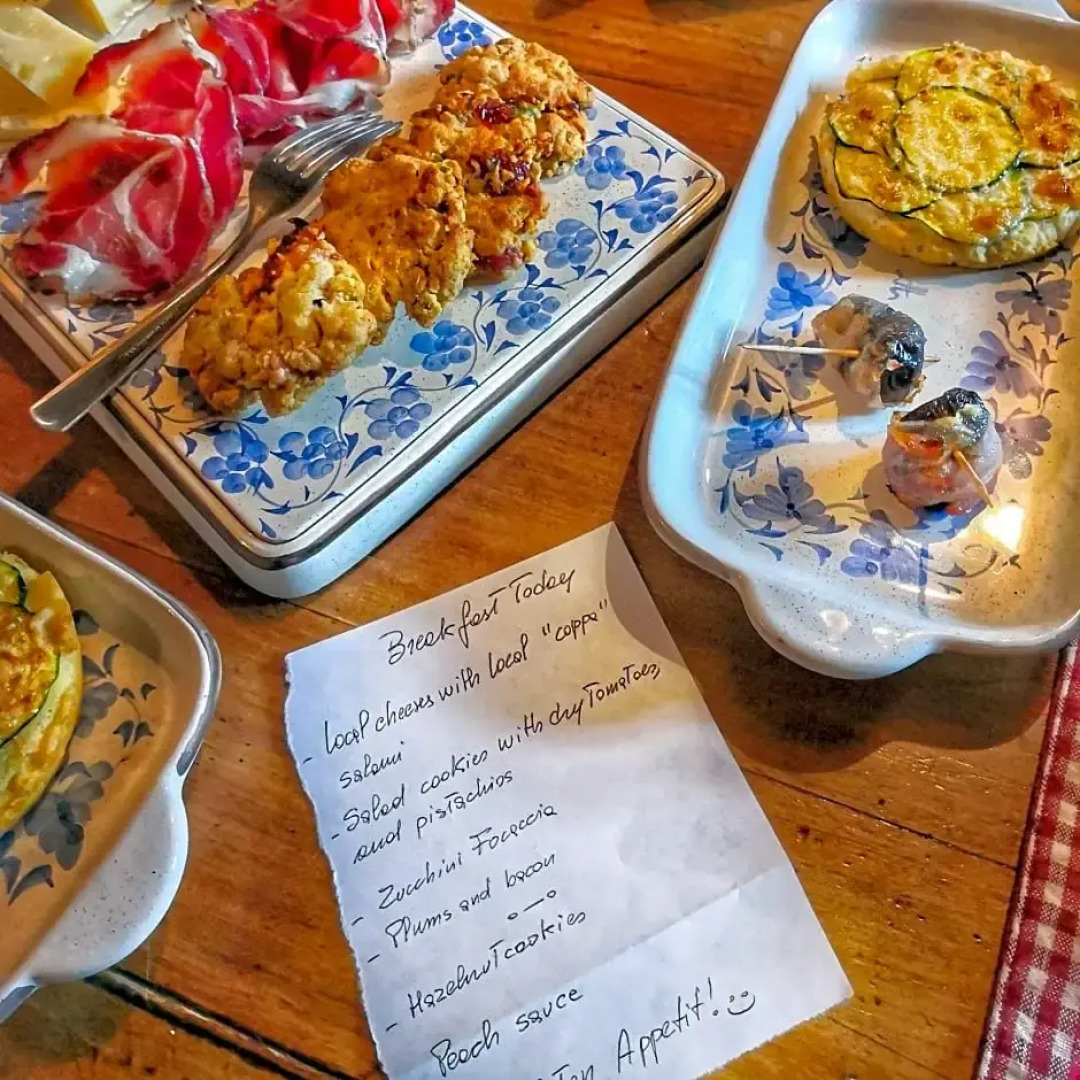 Breakfast Today
- local cheeses with local "coppa"
salami
- Salad cookies with dry Tomatoes
and pistachios
- Zucchini Focaccia
- Plums and bacon
- Hazelnut cookies
Peach sauce
Appetit! :)